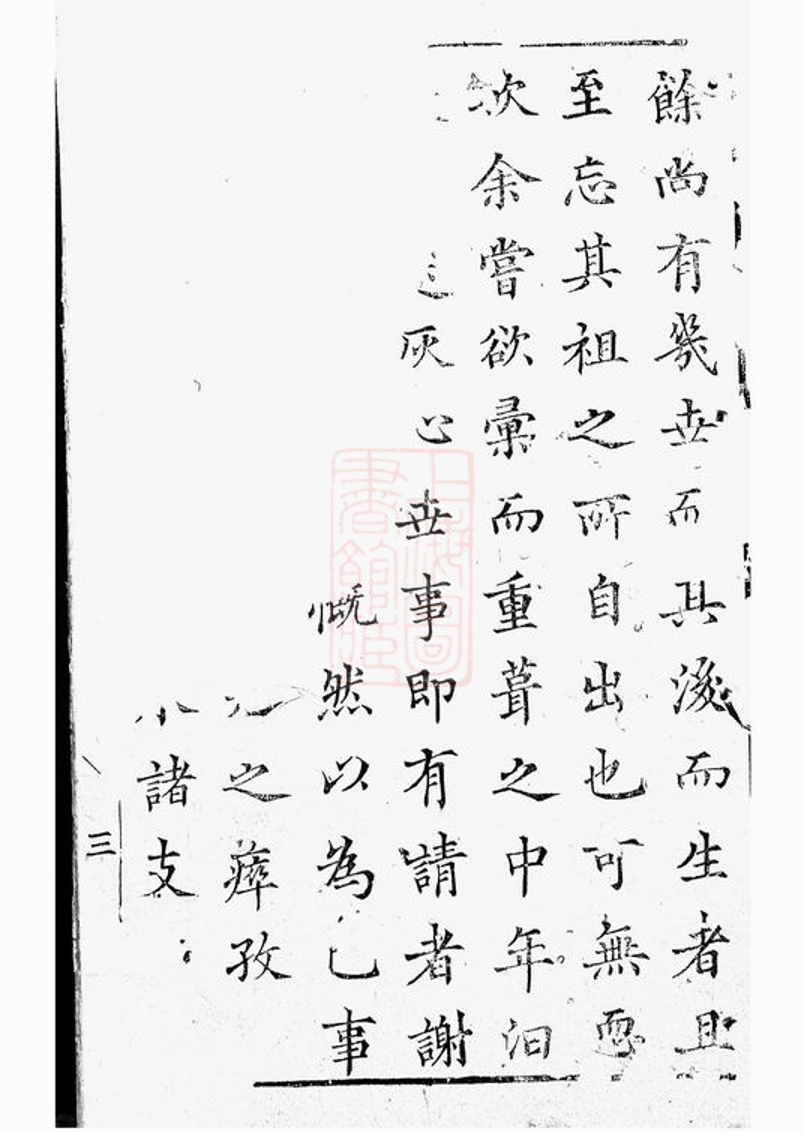 餘尚有幾世而其後而生者且
至忘其祖之所自出也可無恧
次余嘗欲彙而重葺之中年汩
灰心世事即有請者謝
慨然以為己事
之瘁孜
諸支
三
上海圖書館藏